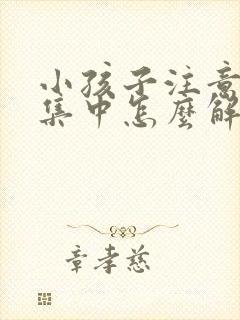 小孩子注意
集中怎麼解
章孝慈